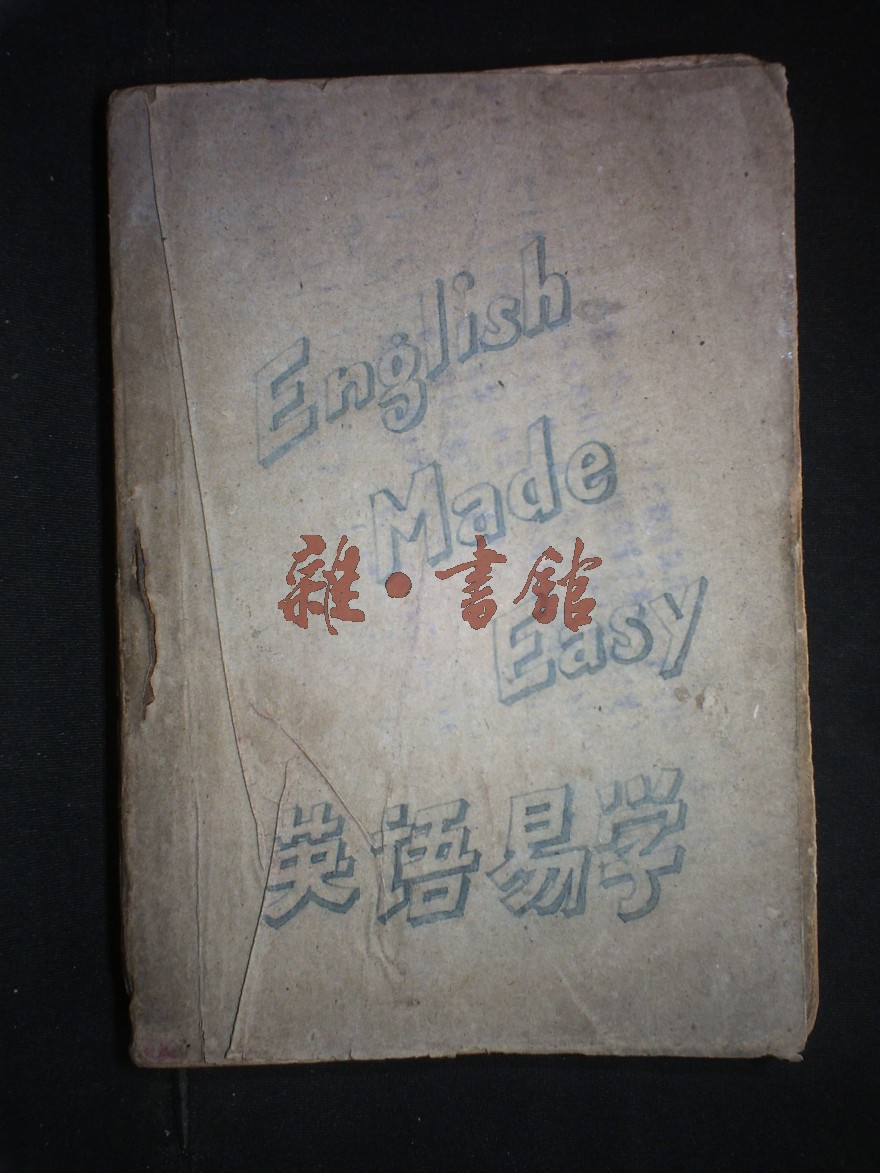 English
Made
雜·書館
Easy
英語易学